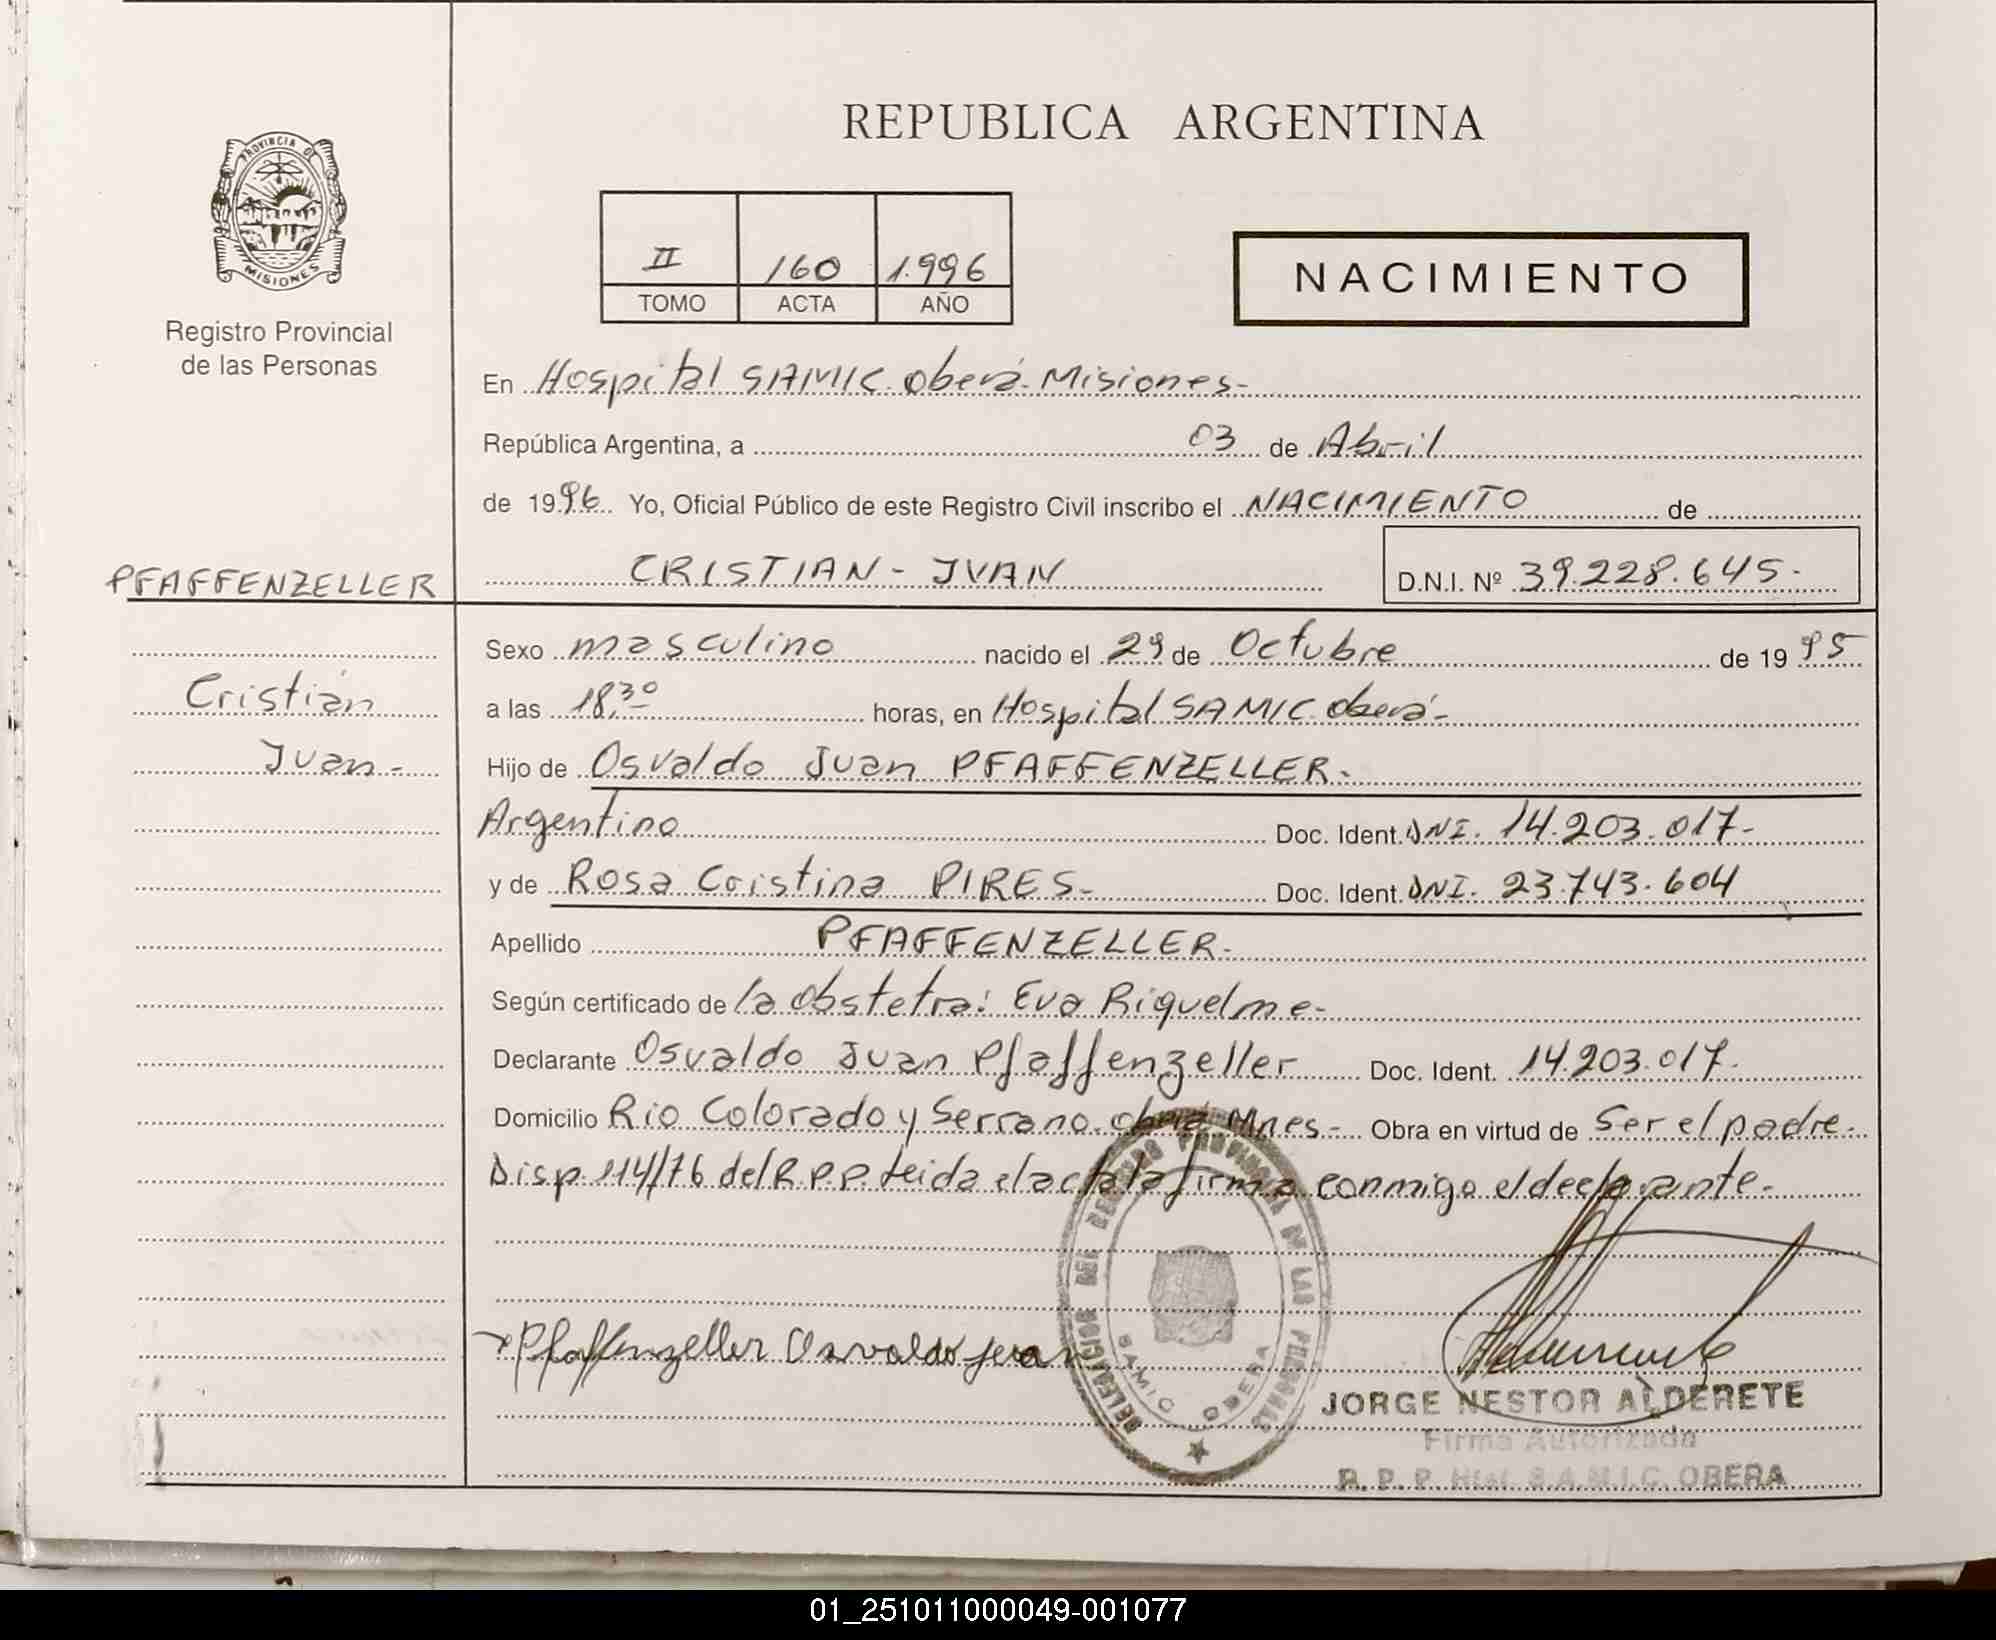 REPUBLICA ARGENTINA
PROVINCIA DE
MISIONES
Registro Provincial
de las Personas
II 160 1.996
TOMO ACTA AÑO
NACIMIENTO
En Hospital SAMIC. Oberá. Misiones-
República Argentina, a 03 de Abril
de 1996 Yo, Oficial Público de este Registro Civil inscribo el NACIMIENTO de
PFAFFENZELLER
CRISTIAN - JUAN
D.N.I. Nº 39.228.645.-
Sexo masculino nacido el 29 de Octubre de 1995
Cristian
a las 18,30 horas, en Hospital SAMIC. Oberá-
Juan-
Hijo de Osvaldo Juan PFAFFENZELLER.
Argentino Doc. Ident. DNI. 14.203.017-
y de Rosa Cristina PIRES- Doc. Ident. DNI. 23.743.604
Apellido PFAFFENZELLER.
Según certificado de la obstetra: Eva Riquelme-
Declarante Osvaldo Juan Pfaffenzeller Doc. Ident. 14.203.017.
Domicilio Rio Colorado y Serrano. Oberá Mnes- Obra en virtud de Ser el padre.
Disp. 114/76 del R.P.P. Leida el acta la firma conmigo el declarante-
DELEGACION DEL REGISTRO PROVINCIAL DE LAS PERSONAS
SAMIC OBERA
Pfaffenzeller Osvaldo Juan
JORGE NESTOR ALDERETE
Firma Autorizada
R. P. P. Htal. S.A.M.I.C. OBERA
01_251011000049-001077